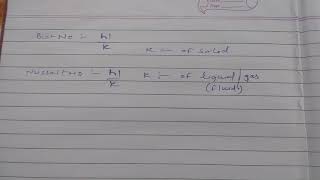 Biot No :- hl/k k :- of solid
Nusselt No :- hl/k k :- of liquid/gas
(fluids)